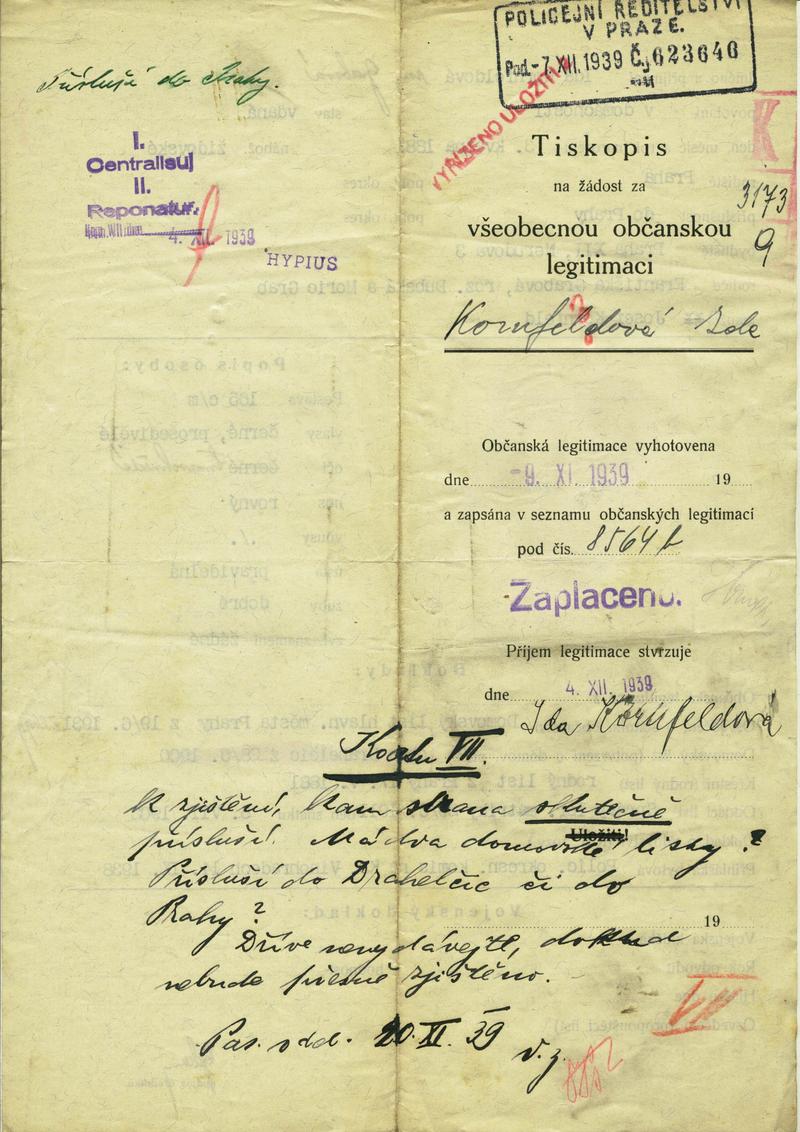 POLICEJNÍ ŘEDITELSTVÍ
V PRAZE.
Pod. -7. XII. 1939 Č. 623640
Přísluší do Prahy.
VYŘÍZENO ULOŽITI
K
I.
Centralisuj
II.
Reponatur.
4. XII. 1939
HYPIUS
Tiskopis
na žádost za
všeobecnou občanskou
legitimaci
3173
9
Kornfeldová Ida
Občanská legitimace vyhotovena
dne -9. XI. 1939 19
a zapsána v seznamu občanských legitimací
pod čís. 8564 b
Zaplaceno.
Příjem legitimace stvrzuje
dne 4. XII. 1939
Ida Kornfeldová
VII.
K zjištění, kam strana skutečně
přísluší. Má dva domovské listy?
Uložiti!
Přísluší do Drahelčic či do
Prahy?
19
Dříve nevydávejte, dokud
nebude přesně zjištěno.
VII
Pas. odd. 20. XI. 39
v. z.